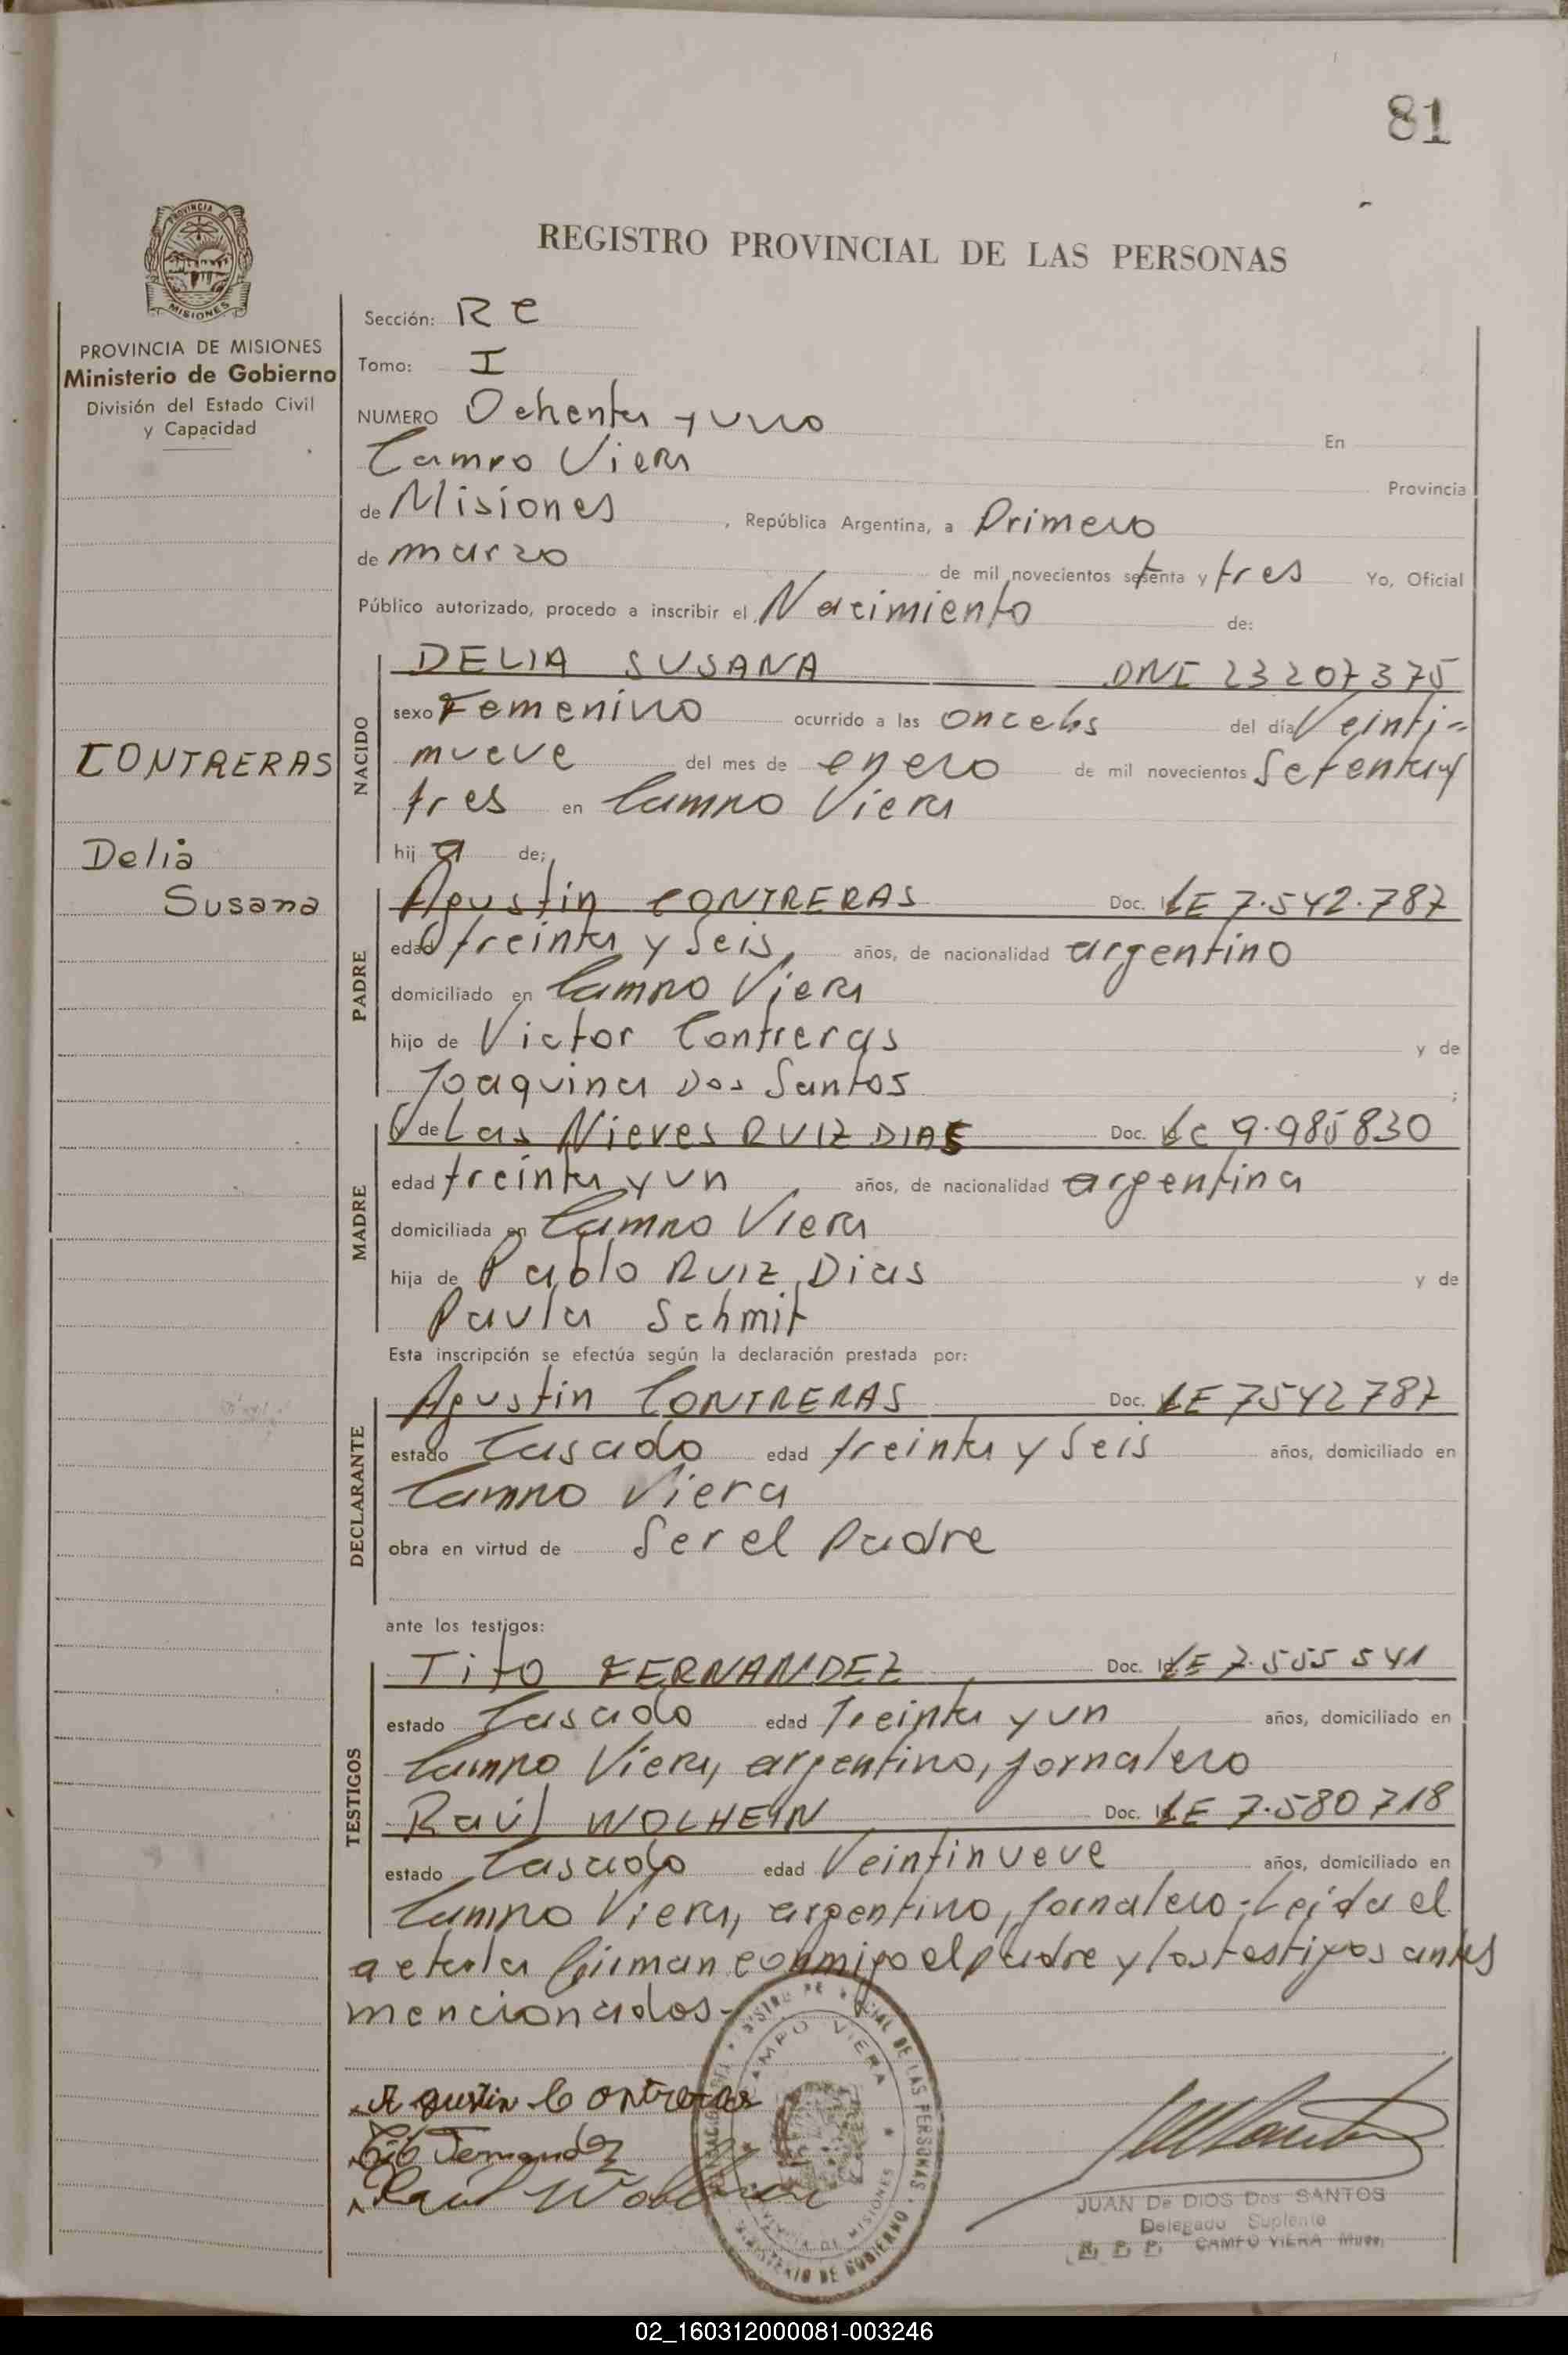 81
REGISTRO PROVINCIAL DE LAS PERSONAS
PROVINCIA
MISIONES
PROVINCIA DE MISIONES
Ministerio de Gobierno
División del Estado Civil
y Capacidad
CONTRERAS
Delia
Susana
Sección: RC
Tomo: I
NUMERO Ochenta y uno En
Campo Viera Provincia
de Misiones , República Argentina, a Primero
de marzo de mil novecientos setenta y tres Yo, Oficial
Público autorizado, procedo a inscribir el Nacimiento de:
NACIDO
DELIA SUSANA DNI 23207375
sexo Femenino ocurrido a las once hs del día Veinti-
nueve del mes de enero de mil novecientos Setenta y
tres en Campo Viera
hij a de;
PADRE
Agustin CONTRERAS Doc. LE 7.542.787
edad treinta y seis años, de nacionalidad argentino
domiciliado en Campo Viera
hijo de Victor Contreras y de
Joaquina Dos Santos ;
MADRE
y de Las Nieves RUIZ DIAS Doc. LC 9.985830
edad treinta y un años, de nacionalidad argentina
domiciliada en Campo Viera
hija de Pablo RUIZ Dias y de
Paula Schmit
Esta inscripción se efectúa según la declaración prestada por:
DECLARANTE
Agustin CONTRERAS Doc. LE 7542787
estado Casado edad treinta y seis años, domiciliado en
Campo Viera
obra en virtud de Ser el Padre
ante los testigos:
TESTIGOS
Tito FERNANDEZ Doc. Id. LE 7.555541
estado Casado edad Treinta y un años, domiciliado en
Campo Viera, argentino, jornalero
Raúl WOLHEIN Doc. Id. LE 7.580718
estado Casado edad Veintinueve años, domiciliado en
Campo Viera, argentino, jornalero-Leida el
acta la firman conmigo el padre y los testigos antes
mencionados-
Agustin Contreras
Tito Fernandez
Raul
CAMPO VIERA
DE LAS PERSONAS
MINISTERIO DE GOBIERNO
PROVINCIA DE MISIONES
JUAN De DIOS Dos SANTOS
Delegado Suplente
R. P. P. CAMPO VIERA Mnes.
02_160312000081-003246